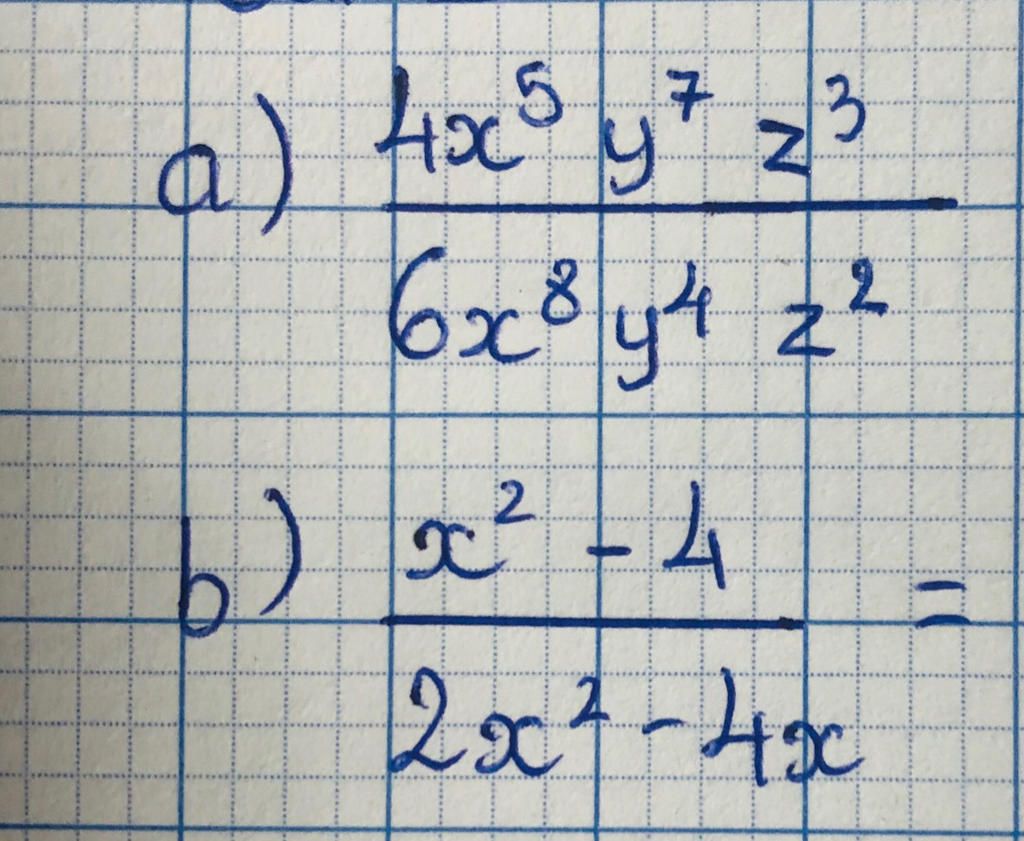 a) 4x⁵ y⁷ z³
6x⁸ y⁴ z²
b) x² - 4 =
2x² - 4x